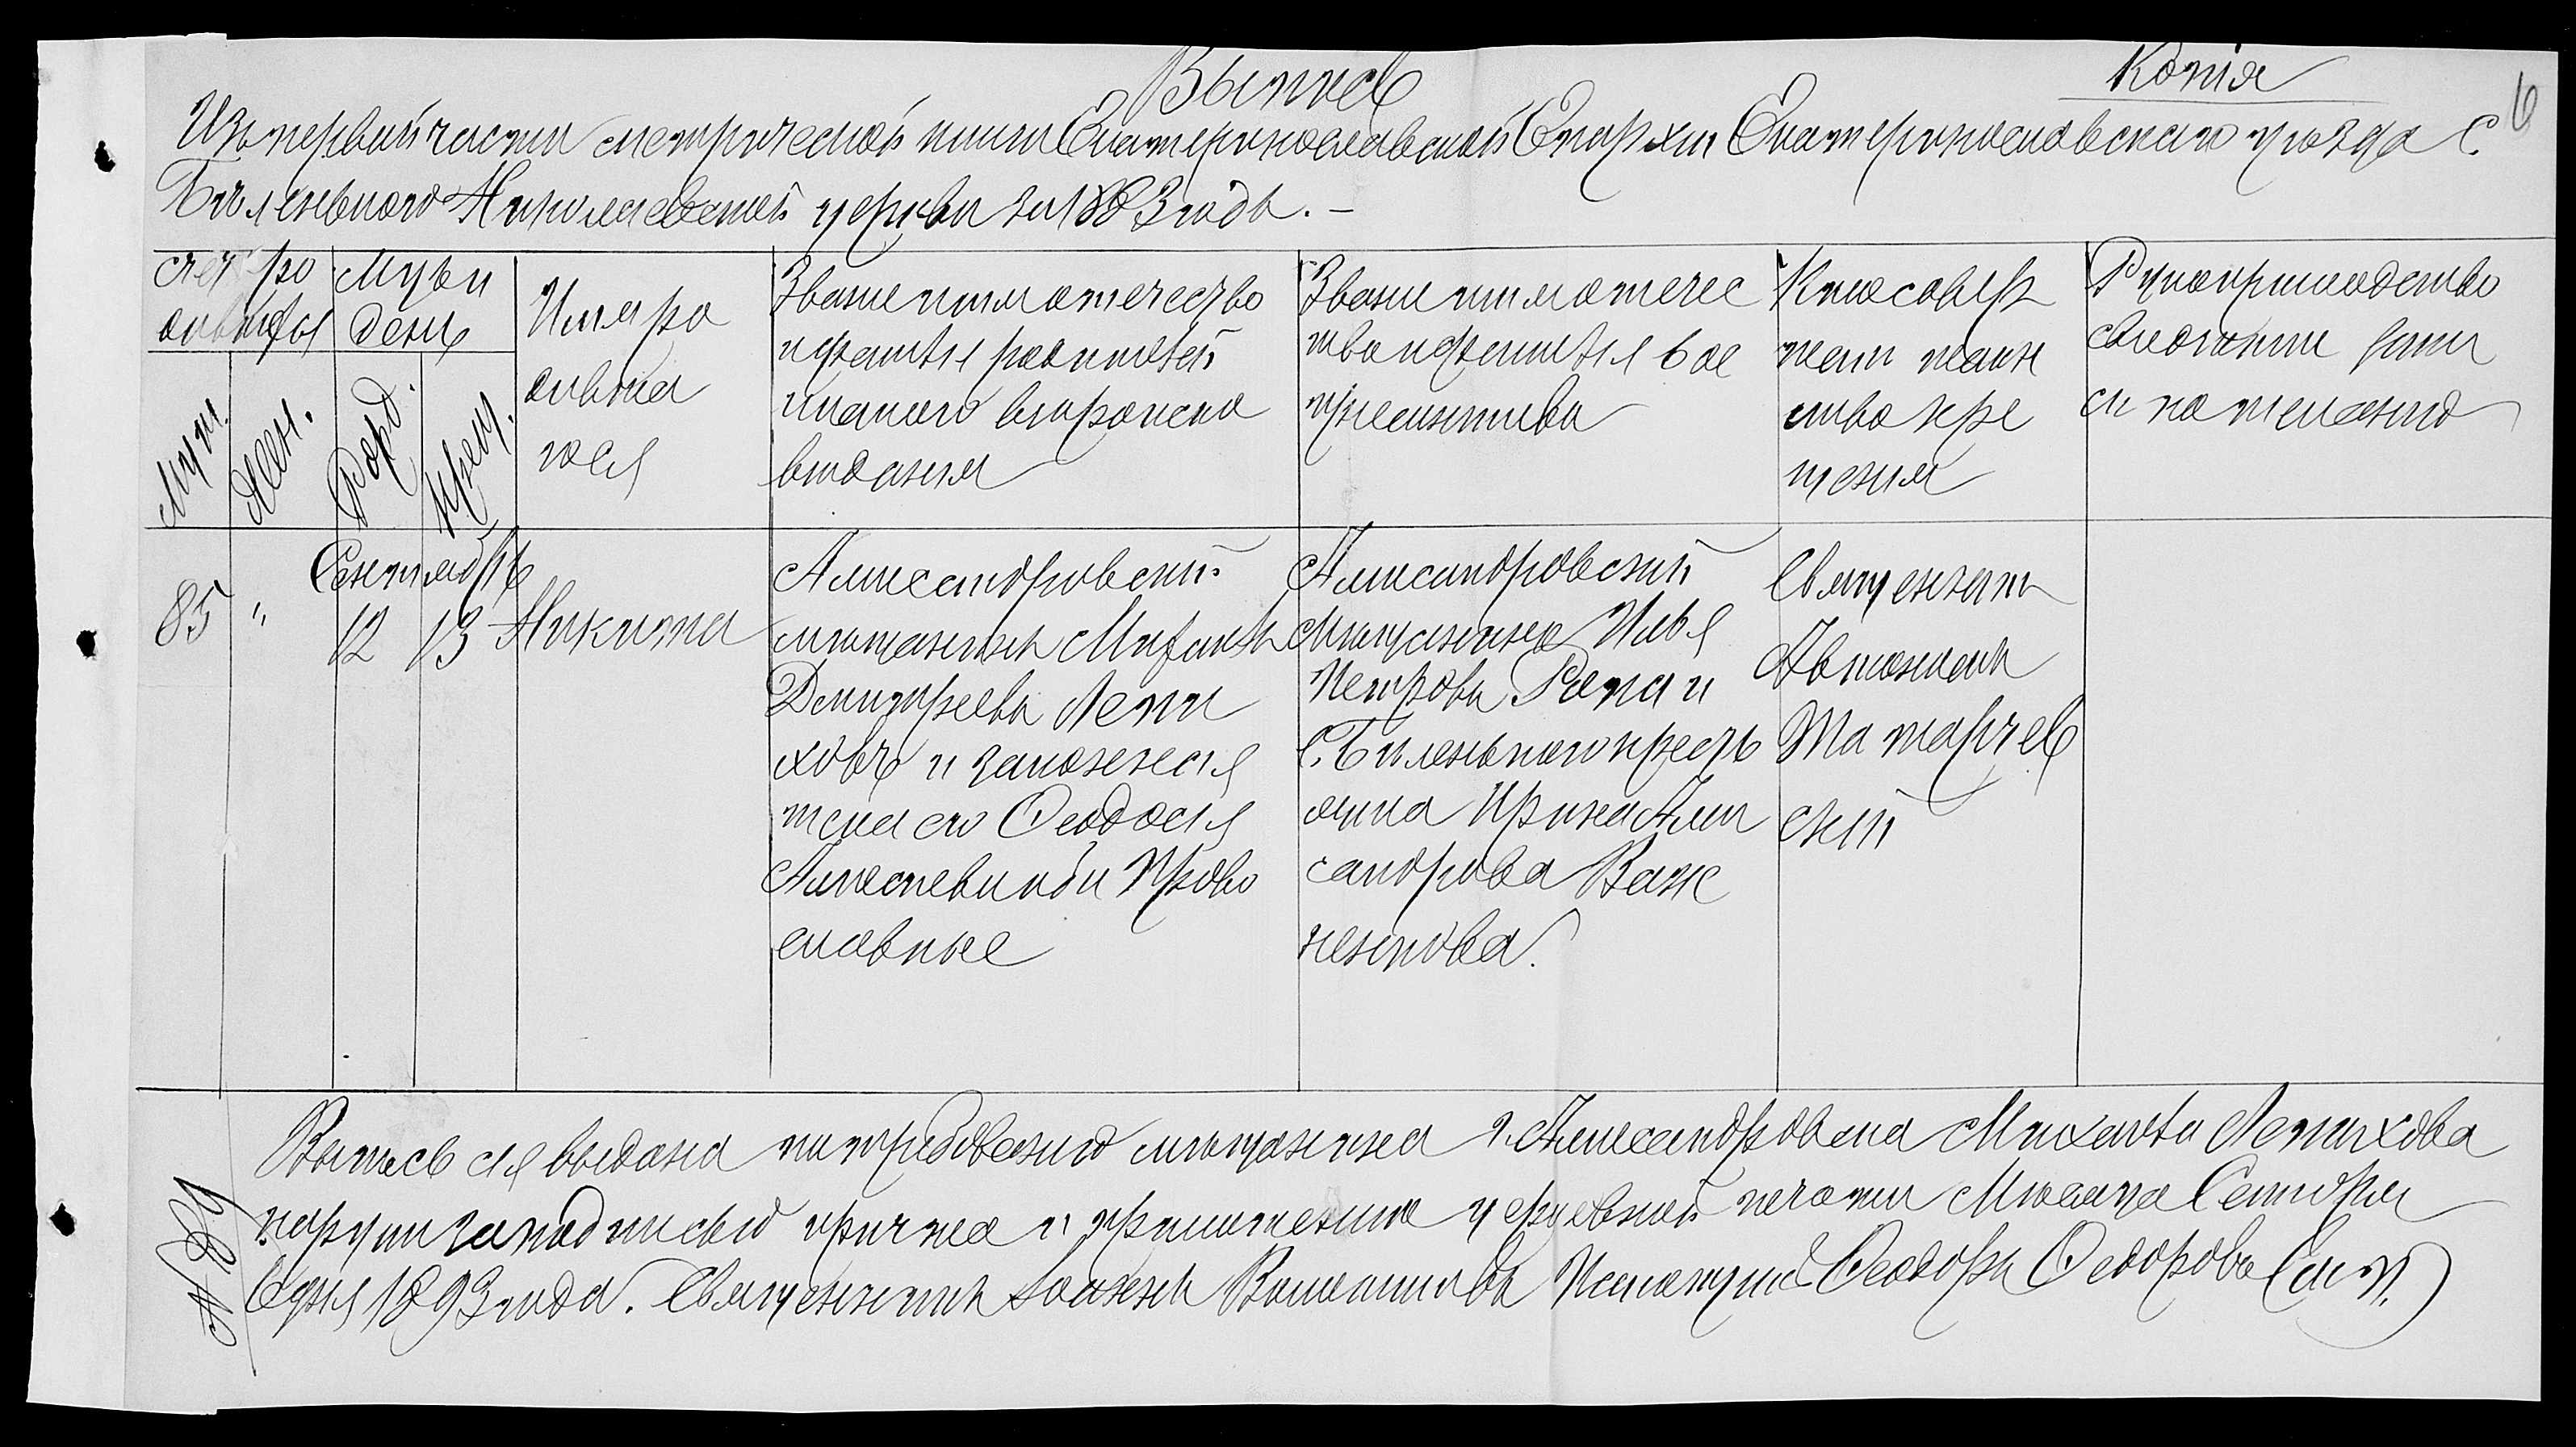 Копія
6
Выпись
Изъ первой части метрической книги Екатеринославской Епархіи Екатеринославскаго уѣзда С.
Биленькаго Николаевской церкви за 1883 годъ. –
Счетъ ро
дивших
Муж.
Жен.
Мѣсяцъ и
день
Рожд.
Крещ.
Имя ро
дивша
гося
Званіе имя отечество
и фамилія родителей
и какого вѣроиспо
вѣданія
Званіе имя отечес
тво и фамилія вос
пріемниковъ
Кто совер
шалъ таин
ство кре
щенія
Рукоприкладство
свидѣтелей запи
си по желанію
85 " Сентябрь
12 13 Никита
Александровскій
мѣщанинъ Михаилъ
Дмитріевъ Лепи
ховъ и законная
жена его Феодосія
Алексѣева оба Право
славные
Александровскій
Мѣщанинъ Илья
Петровъ Репа и
С. Биленькаго крестья
нина Ирина Алек
сандрова
Священникъ
Автономъ
Татарчев
скій
Выпись сія выдана по требованію мѣщанина г. Александровска Михаила Лепихова
за подписью причта и приложеніемъ церковной печати Мѣсяца Сентября
дня 1893 года. Священникъ Іоаннъ Псаломщикъ Феодоръ Федоровъ (м. п.)
№ 89